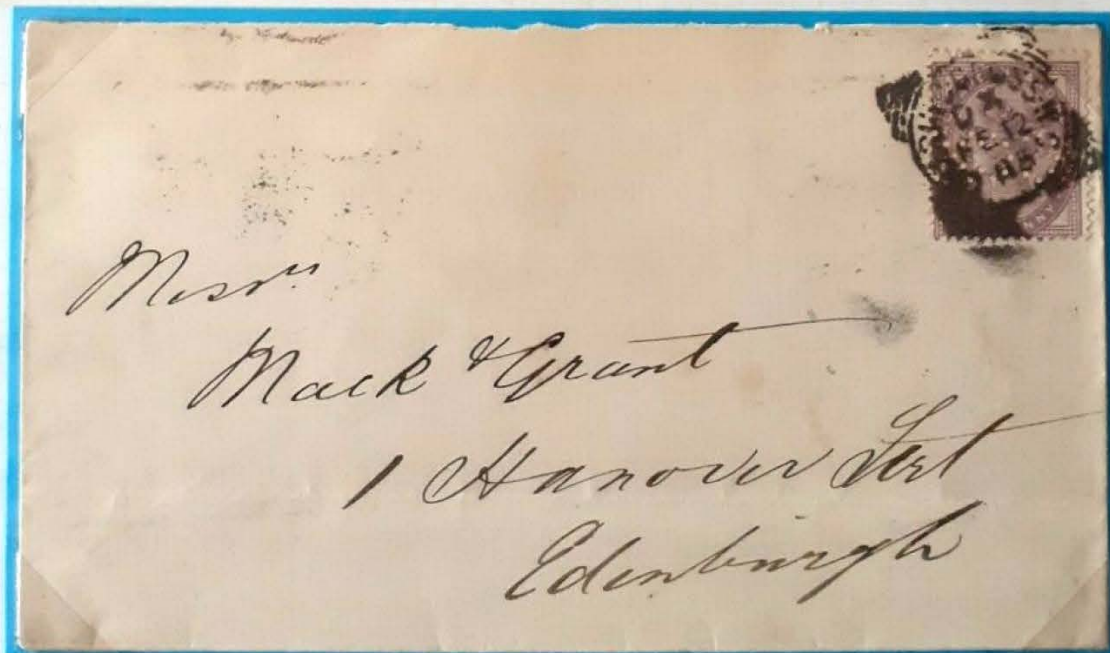 CROSS W.C
C X
FE 12
Messrs
Mack & Grant
1 Hanover Stret
Edinburgh